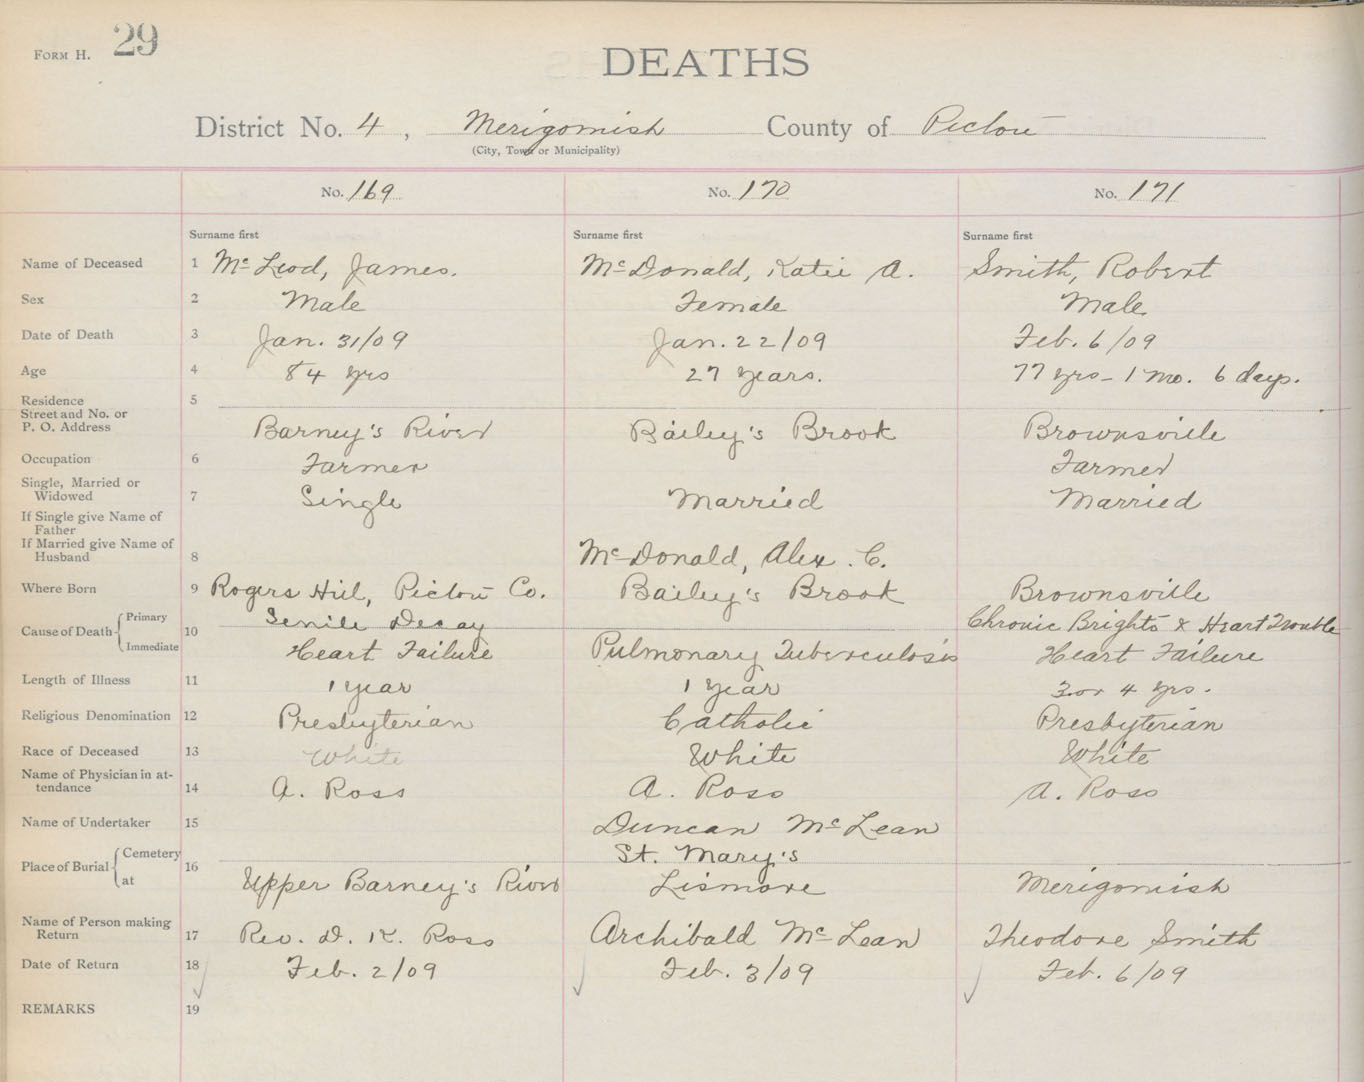 FORM H. 29
DEATHS
District No. 4, Merigomish County of Pictou
(City, Town or Municipality)
No. 169 No. 170 No. 171
Surname first Surname first Surname first
Name of Deceased 1 Mc Leod, James. Mc Donald, Katie A. Smith, Robert
Sex 2 Male Female Male
Date of Death 3 Jan. 31/09 Jan. 22/09 Feb. 6/09
Age 4 84 yrs 27 years. 77 yrs - 1 mo. 6 days.
Residence 5
Street and No. or
P. O. Address Barney's River Bailey's Brook Brownsville
Occupation 6 Farmer Farmer
Single, Married or
Widowed 7 Single Married Married
If Single give Name of
Father
If Married give Name of
Husband 8 Mc Donald, Alex. C.
Where Born 9 Rogers Hill, Pictou Co. Bailey's Brook Brownsville
Cause of Death Primary 10 Senile Decay Chronic Brights & Heart Trouble
Immediate Heart Failure Pulmonary Tuberculosis Heart Failure
Length of Illness 11 1 year 1 year 3 or 4 yrs.
Religious Denomination 12 Presbyterian Catholic Presbyterian
Race of Deceased 13 White White White
Name of Physician in at-
tendance 14 A. Ross A. Ross A. Ross
Name of Undertaker 15 Duncan Mc Lean
Place of Burial Cemetery 16 St. Mary's
at Upper Barney's River Lismore Merigomish
Name of Person making
Return 17 Rev. D. K. Ross Archibald Mc Lean Theodore Smith
Date of Return 18 Feb. 2/09 Feb. 3/09 Feb. 6/09
REMARKS 19